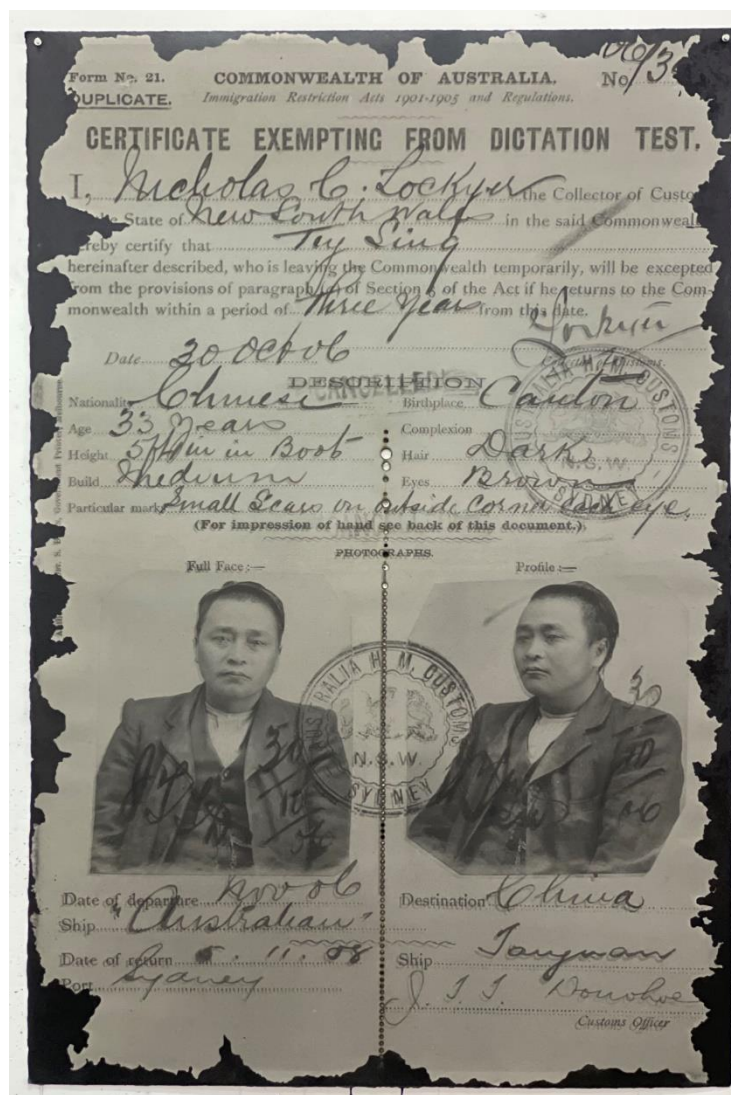 Form No. 21.
COMMONWEALTH OF AUSTRALIA.
No
DUPLICATE.
Immigration Restriction Acts 1901-1905 and Regulations.
CERTIFICATE EXEMPTING FROM DICTATION TEST.
I, Nicholas C. Lockyer the Collector of Custo
State of New South Wales in the said Commonweal
ereby certify that Tey Sing
hereinafter described, who is leaving the Commonwealth temporarily, will be excepted
from the provisions of paragraph (a) of Section of the Act if he returns to the Com-
monwealth within a period of Three Years from this date.
Lockyer
Date 30 Oct 06
DESCRIPTION
CANCELLED
Nationality Chinese
Birthplace Canton
Age 33 Years
Complexion
Height 5ft in in Boot
Hair Dark
Build Medium
Eyes Brown
Particular marks Small Scars on outside corner each eye.
(For impression of hand see back of this document.)
PHOTOGRAPHS.
Full Face :—
Profile :—
AUSTRALIA H. M. CUSTOMS
N.S.W.
SYDNEY
RALIA H. M. CUSTOMS
N.S.W.
SYDNEY
30
10
06
30
10
06
Date of departure Nov 06
Destination China
Ship "Australian"
Date of return 5. 11. 08
Ship Taiyuan
Port Sydney
J. T. T. Donohoe
Customs Officer